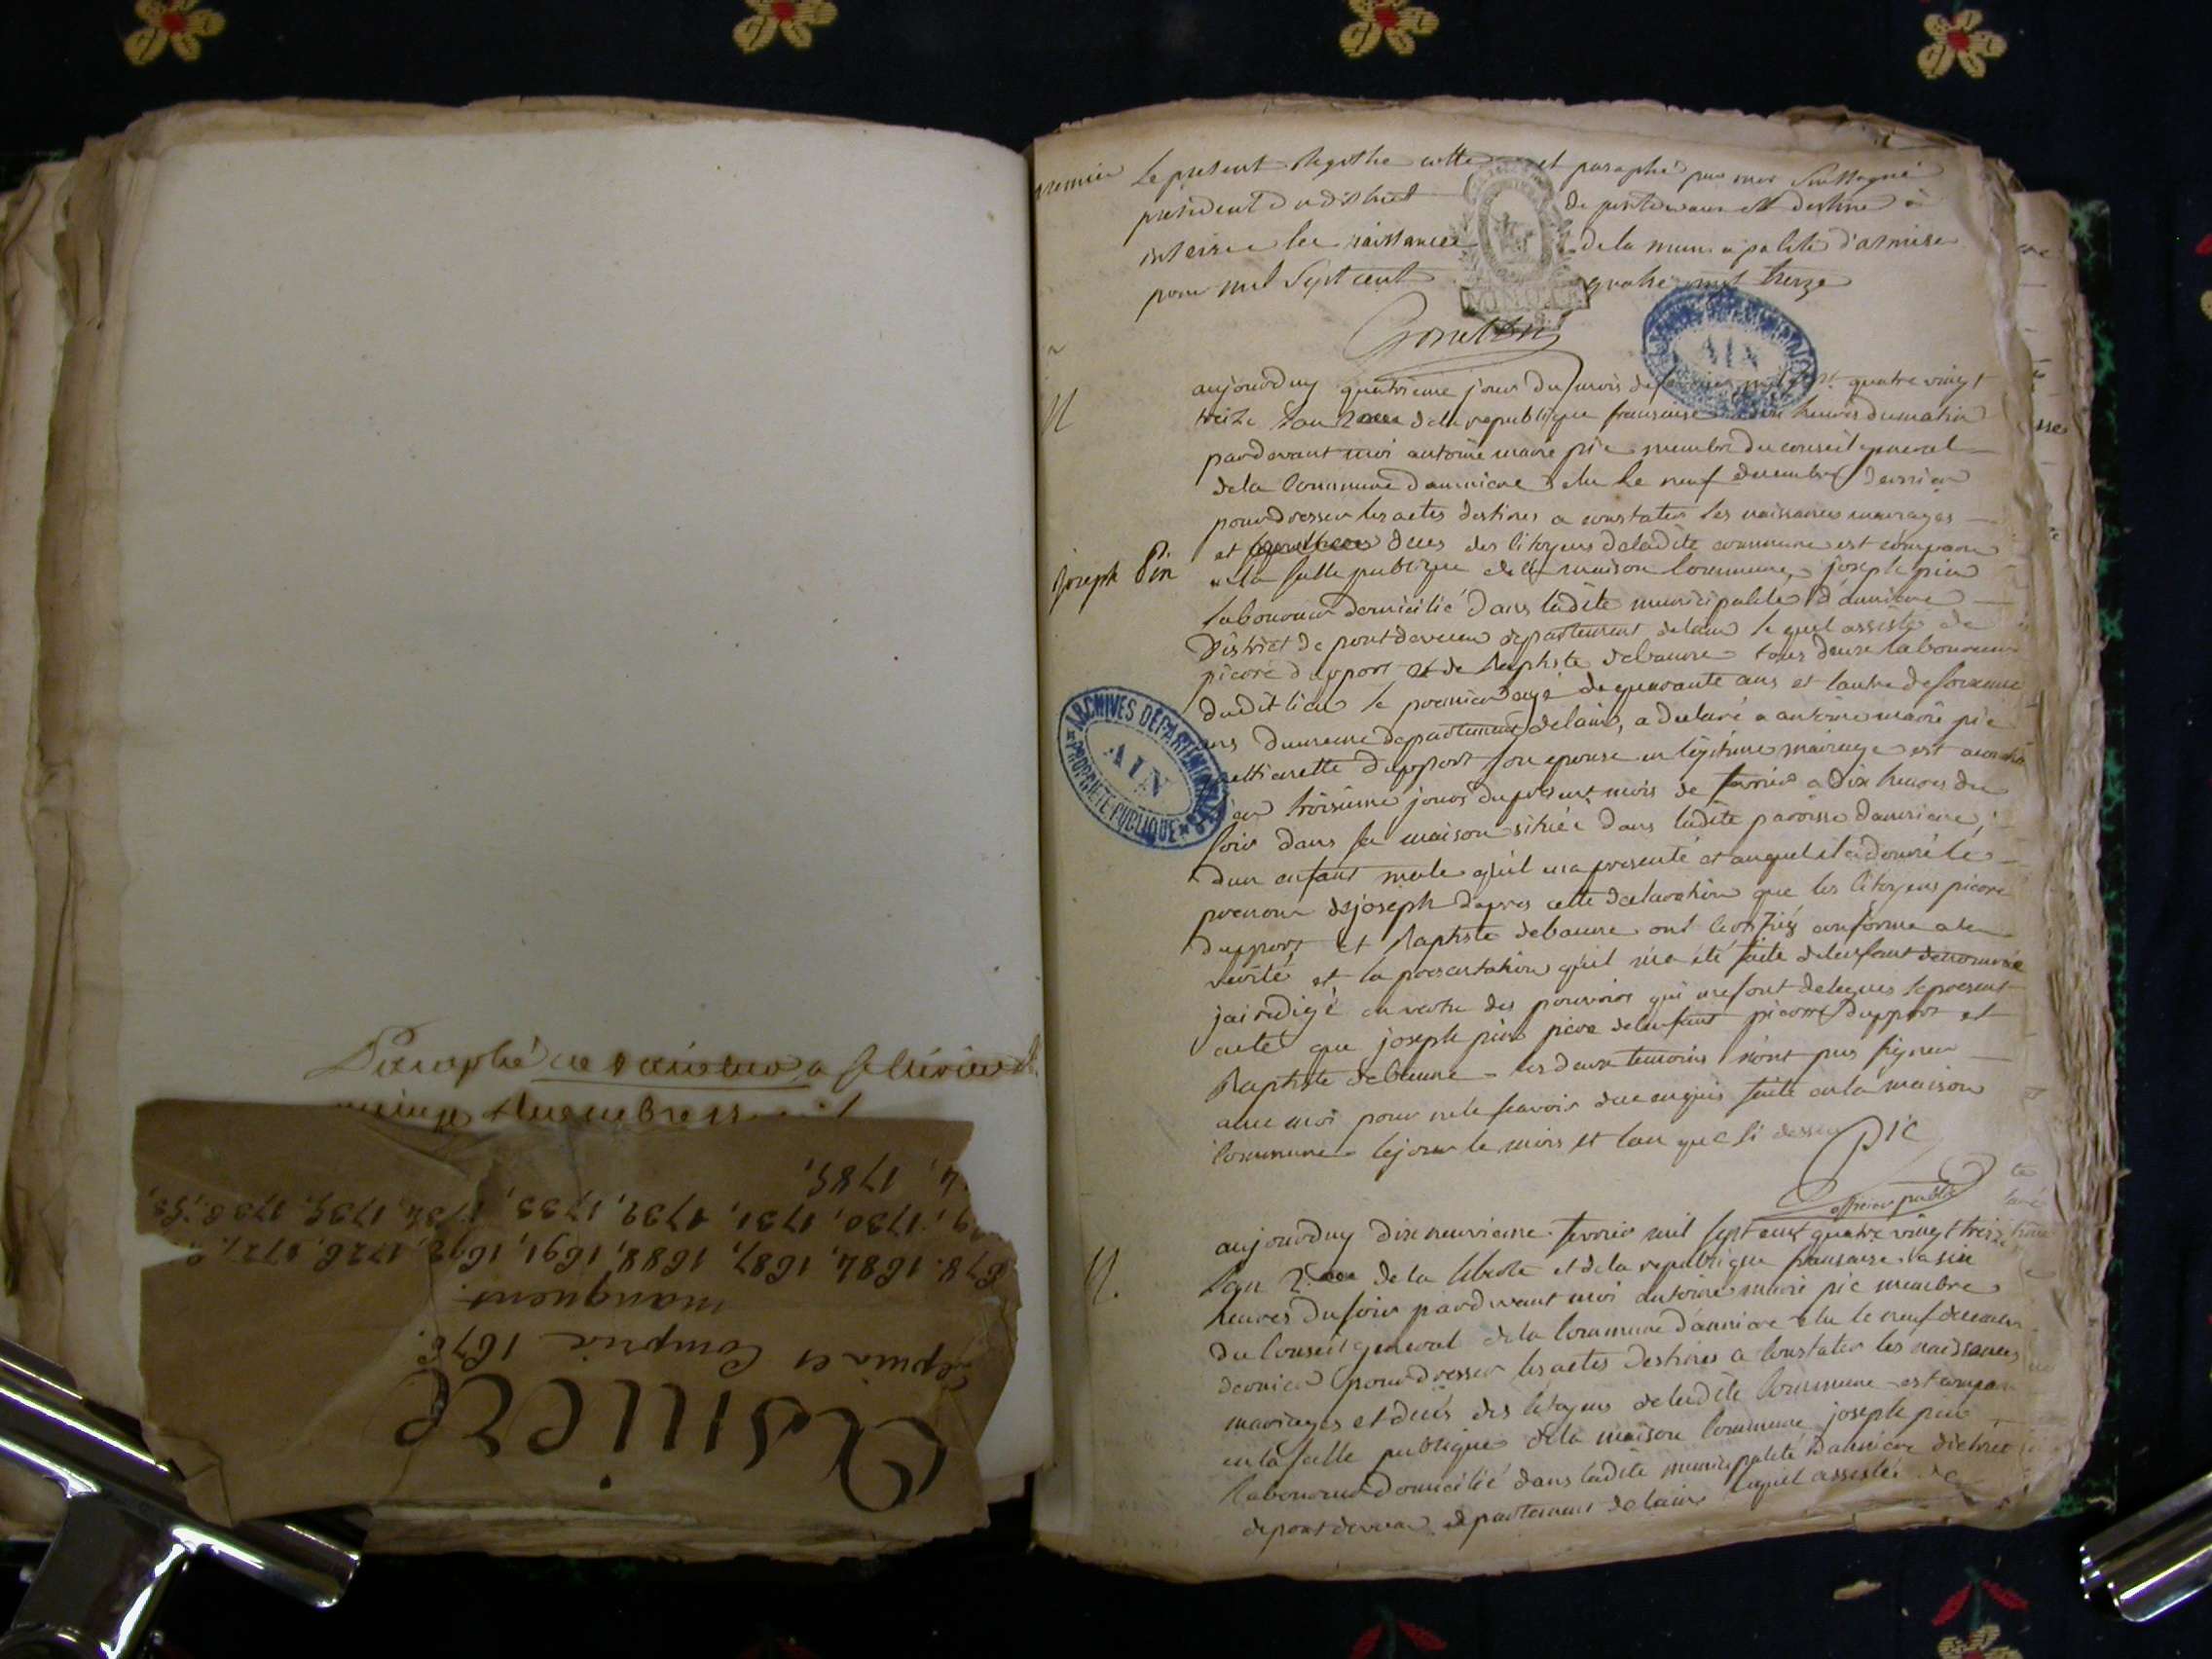 Paraphé
Asniere
Depuis et Compris 1670.
manquent.
1678. 1684, 1687, 1688, 1691, 1692, 1726, 1727,
1730, 1731, 1732, 1733, 1734, 1735, 1736
1785,
premier
Le présent Registre cotté et paraphé par moi Soussigné
président du district de pontdevaux est destiné à
inscrire les naissances de la municipalité d'asniere
pour mil Sept cent quatre vingt treize
MINUTE
ARCHIVES DÉPARTEMENTALES
AIN
PROPRIÉTÉ PUBLIQUE
N
aujourduy quatrieme jour du mois de fevrier quatre vingt
treize l'an 2 de la republique francaise heures du matin
pardevant moi antoine marie pic membre du conseil general
de la Commune danniere elu le neuf decembre dernier
pour dresser les actes destines a constater les naissances mariages
Joseph Pin
et deces des Citoyens de ladite commune est comparu
en la salle publique de la maison Commune, joseph pin
laboureur domicilié dans ladite municipalité d'anniere
District de pontdevaux departement de lain le quel assisté de
pierre dupport et de Baptiste debaune tous deux laboureurs
dudit lieu le premier agé de quarante ans et lautre de soixante
ans danniere departement de lain, a declaré a antoine marie pic
dupport son epouse en legitime mariage est accouché
hier troisieme jour du present mois de fevrier a dix heures du
soir dans sa maison située dans ladite paroisse danniere,
dun enfant male qu'il ma presenté et auquel il a donné le
prenom de joseph dapres cette declaration que les Citoyens pierre
dupport et Baptiste debaune ont certifiés conforme a la
verité et la presentation qu'il ma été faite de lenfant denommé
jai redigé en vertu des pouvoirs qui me sont delegues le present
acte que joseph pin pere de lenfant pierre dupport et
Baptiste debaune les deux temoins n'ont pas signer
avec moi pour ne le scavoir de ce enquis faite en la maison
Commune le jour le mois et lan que si dessus
Pic
officier public
N.
aujourduy dix neuvieme fevrier mil sept cent quatre vingt treize
lan 2 de la liberté et de la republique francaise a six
heures du soir pardevant moi antoine marie pic membre
du Conseil general de la Commune danniere elu le neuf decembre
dernier pour dresser les actes destines a constater les naissances
mariages et deces des Citoyens de ladite Commune est comparu
en la salle publique de la maison Commune joseph pin
laboureur domicilié dans ladite municipalité danniere district
de pont devaux departement de lain lequel assisté de